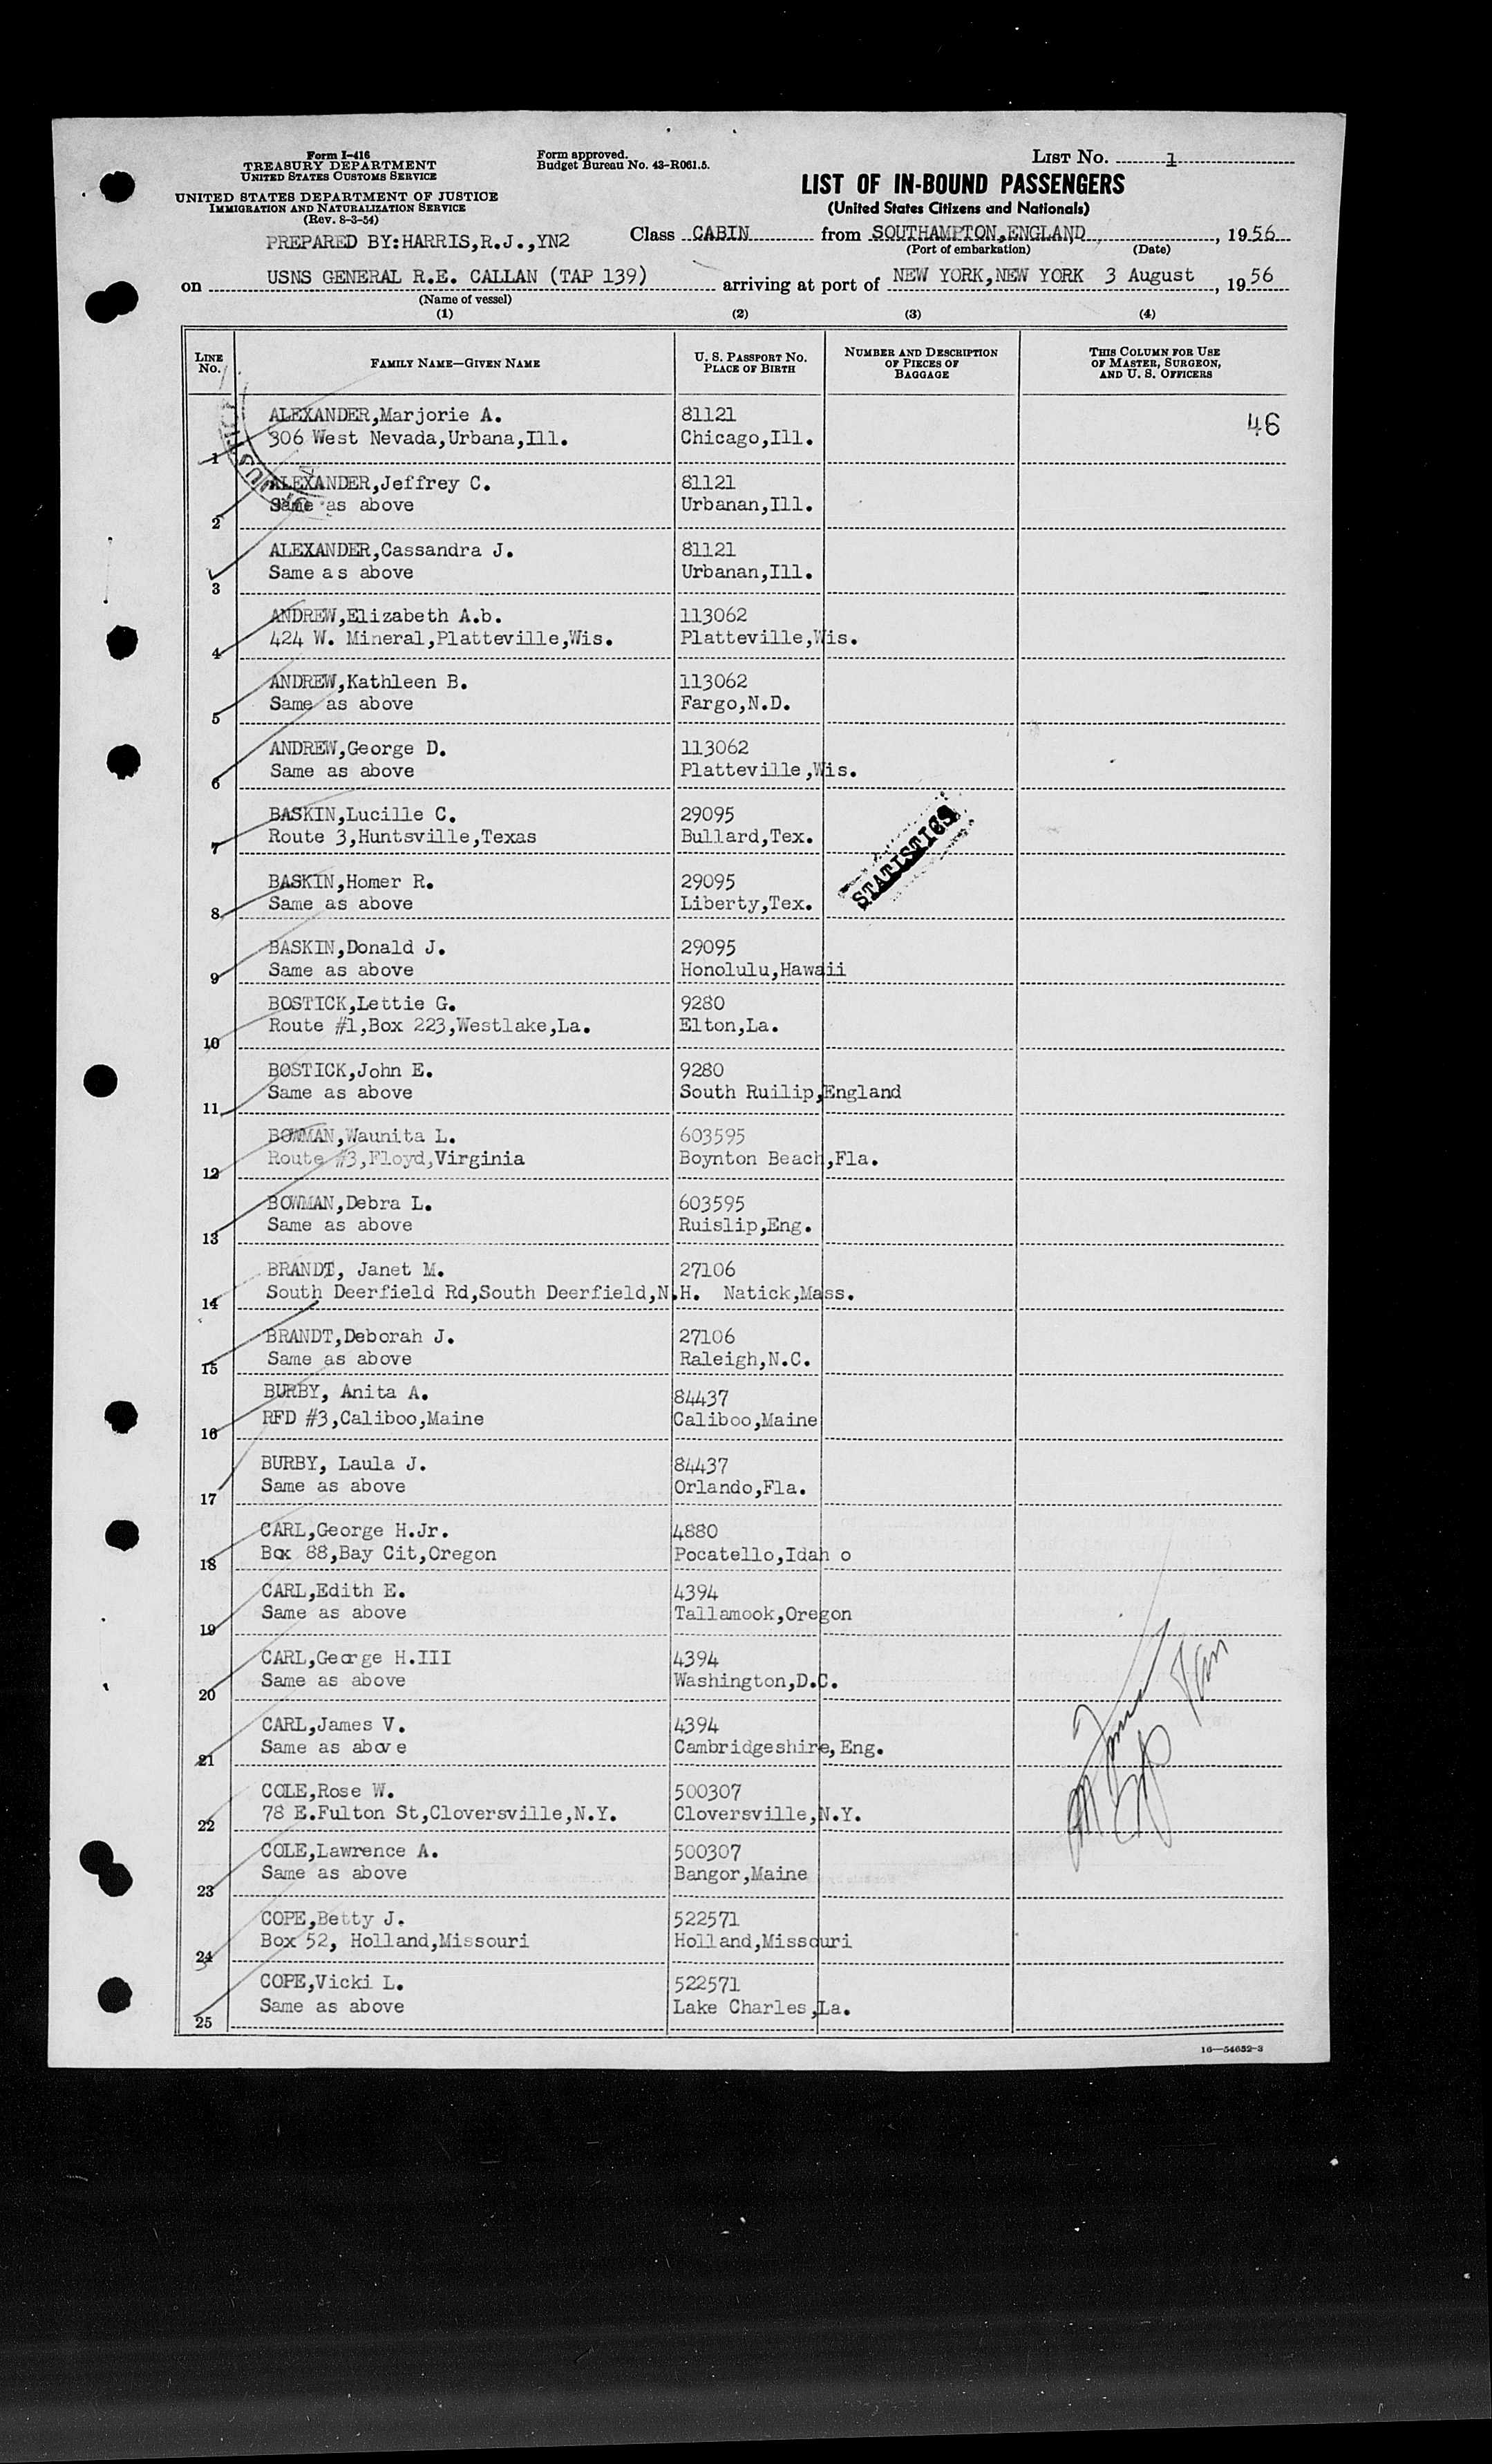 Form I-416
TREASURY DEPARTMENT
UNITED STATES CUSTOMS SERVICE
UNITED STATES DEPARTMENT OF JUSTICE
IMMIGRATION AND NATURALIZATION SERVICE
(Rev. 8-3-54)
Form approved.
Budget Bureau No. 43-R061.5.
LIST NO. 1
LIST OF IN-BOUND PASSENGERS
(United States Citizens and Nationals)
PREPARED BY:HARRIS,R.J.,YN2
Class CABIN from SOUTHAMPTON,ENGLAND, 1956
(Port of embarkation) (Date)
on USNS GENERAL R.E. CALLAN (TAP 139) arriving at port of NEW YORK,NEW YORK 3 August, 1956
(Name of vessel)
(1) (2) (3) (4)
LINE NO. FAMILY NAME—GIVEN NAME U. S. PASSPORT NO. PLACE OF BIRTH NUMBER AND DESCRIPTION OF PIECES OF BAGGAGE THIS COLUMN FOR USE OF MASTER, SURGEON, AND U. S. OFFICERS
ALEXANDER,Marjorie A. 81121 46
1 306 West Nevada,Urbana,Ill. Chicago,Ill.
ALEXANDER,Jeffrey C. 81121
2 Same as above Urbanan,Ill.
ALEXANDER,Cassandra J. 81121
3 Same as above Urbanan,Ill.
ANDREW,Elizabeth A.b. 113062
4 424 W. Mineral,Platteville,Wis. Platteville,Wis.
ANDREW,Kathleen B. 113062
5 Same as above Fargo,N.D.
ANDREW,George D. 113062
6 Same as above Platteville,Wis.
BASKIN,Lucille C. 29095
7 Route 3,Huntsville,Texas Bullard,Tex.
STATISTICS
BASKIN,Homer R. 29095
8 Same as above Liberty,Tex.
BASKIN,Donald J. 29095
9 Same as above Honolulu,Hawaii
BOSTICK,Lettie G. 9280
10 Route #1,Box 223,Westlake,La. Elton,La.
BOSTICK,John E. 9280
11 Same as above South Ruilip,England
BOWMAN,Waunita L. 603595
12 Route #3,Floyd,Virginia Boynton Beach,Fla.
BOWMAN,Debra L. 603595
13 Same as above Ruislip,Eng.
BRANDT, Janet M. 27106
14 South Deerfield Rd,South Deerfield,N.H. Natick,Mass.
BRANDT,Deborah J. 27106
15 Same as above Raleigh,N.C.
BURBY, Anita A. 84437
16 RFD #3,Caliboo,Maine Caliboo,Maine
BURBY, Laula J. 84437
17 Same as above Orlando,Fla.
CARL,George H.Jr. 4880
18 Box 88,Bay Cit,Oregon Pocatello,Idah o
CARL,Edith E. 4394
19 Same as above Tallamook,Oregon
CARL,George H.III 4394
20 Same as above Washington,D.C.
CARL,James V. 4394
21 Same as above Cambridgeshire,Eng.
COLE,Rose W. 500307
22 78 E.Fulton St,Cloversville,N.Y. Cloversville,N.Y.
COLE,Lawrence A. 500307
23 Same as above Bangor,Maine
COPE,Betty J. 522571
24 Box 52, Holland,Missouri Holland,Missouri
COPE,Vicki L. 522571
25 Same as above Lake Charles,La.
16—54652-3